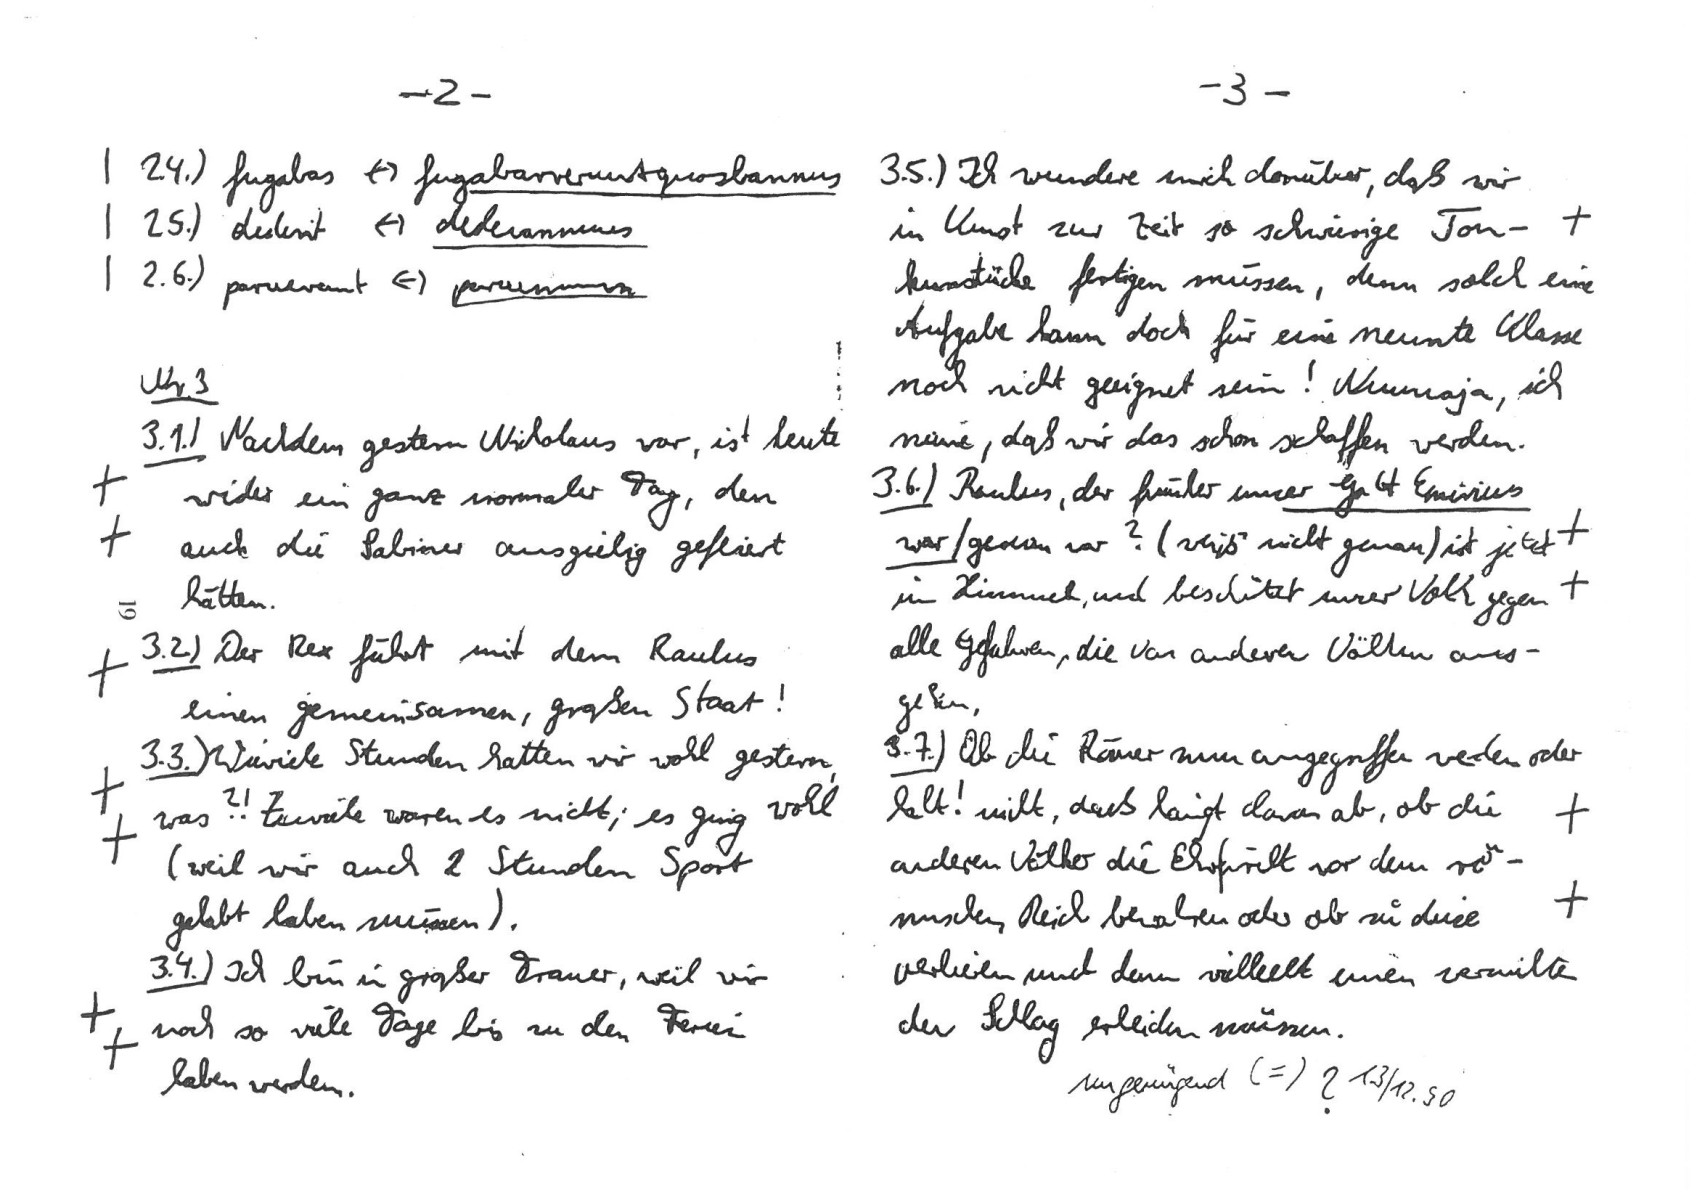 -2-
2.4.) fugabas ↔ fugabarveruntquosbannus
2.5.) dederit ↔
2.6.) ↔
Nr. 3
3.1.) Nachdem gestern Nikolaus war, ist heute
wider ein ganz normaler Tag, den
auch die Sabiner ausgielig gefeiert
hätten.
19
3.2.) Der Rex führt mit dem Raulus
einen gemeinsamen, großen Staat!
3.3.) Wieviele Stunden hatten wir wohl gestern,
was?! Zuviele waren es nicht; es ging wohl
(weil wir auch 2 Stunden Sport
gehabt haben müssen).
3.4.) Ich bin in großer Trauer, weil wir
noch so viele Tage bis zu den Ferien
haben werden.
-3-
3.5.) Ich wundere mich darüber, daß wir
in Kunst zur Zeit so schwierige Ton-
kunstücke fertigen müssen, denn solch eine
Aufgabe kann doch für eine neunte Klasse
noch nicht geeignet sein! Nunnaja, ich
meine, daß wir das schon schaffen werden.
3.6.) Raulus, der früher unser Gott
war/gewesen war? (weiß nicht genau) ist jetzt
im Himmel, und beschützt unser Volk gegen
alle Gefahren, die von anderen Völkern aus-
gehen,
3.7.) Ob die Römer nun angegriffen werden oder
halt! nicht, das hängt davon ab, ob die
anderen Völker die Ehrfurcht vor dem rö-
mischen Reich bewahren oder ob sie diese
verlieren und dann vielleicht einen vernichten
den Schlag erleiden müssen.
ungenügend (=) ? 13/12.90